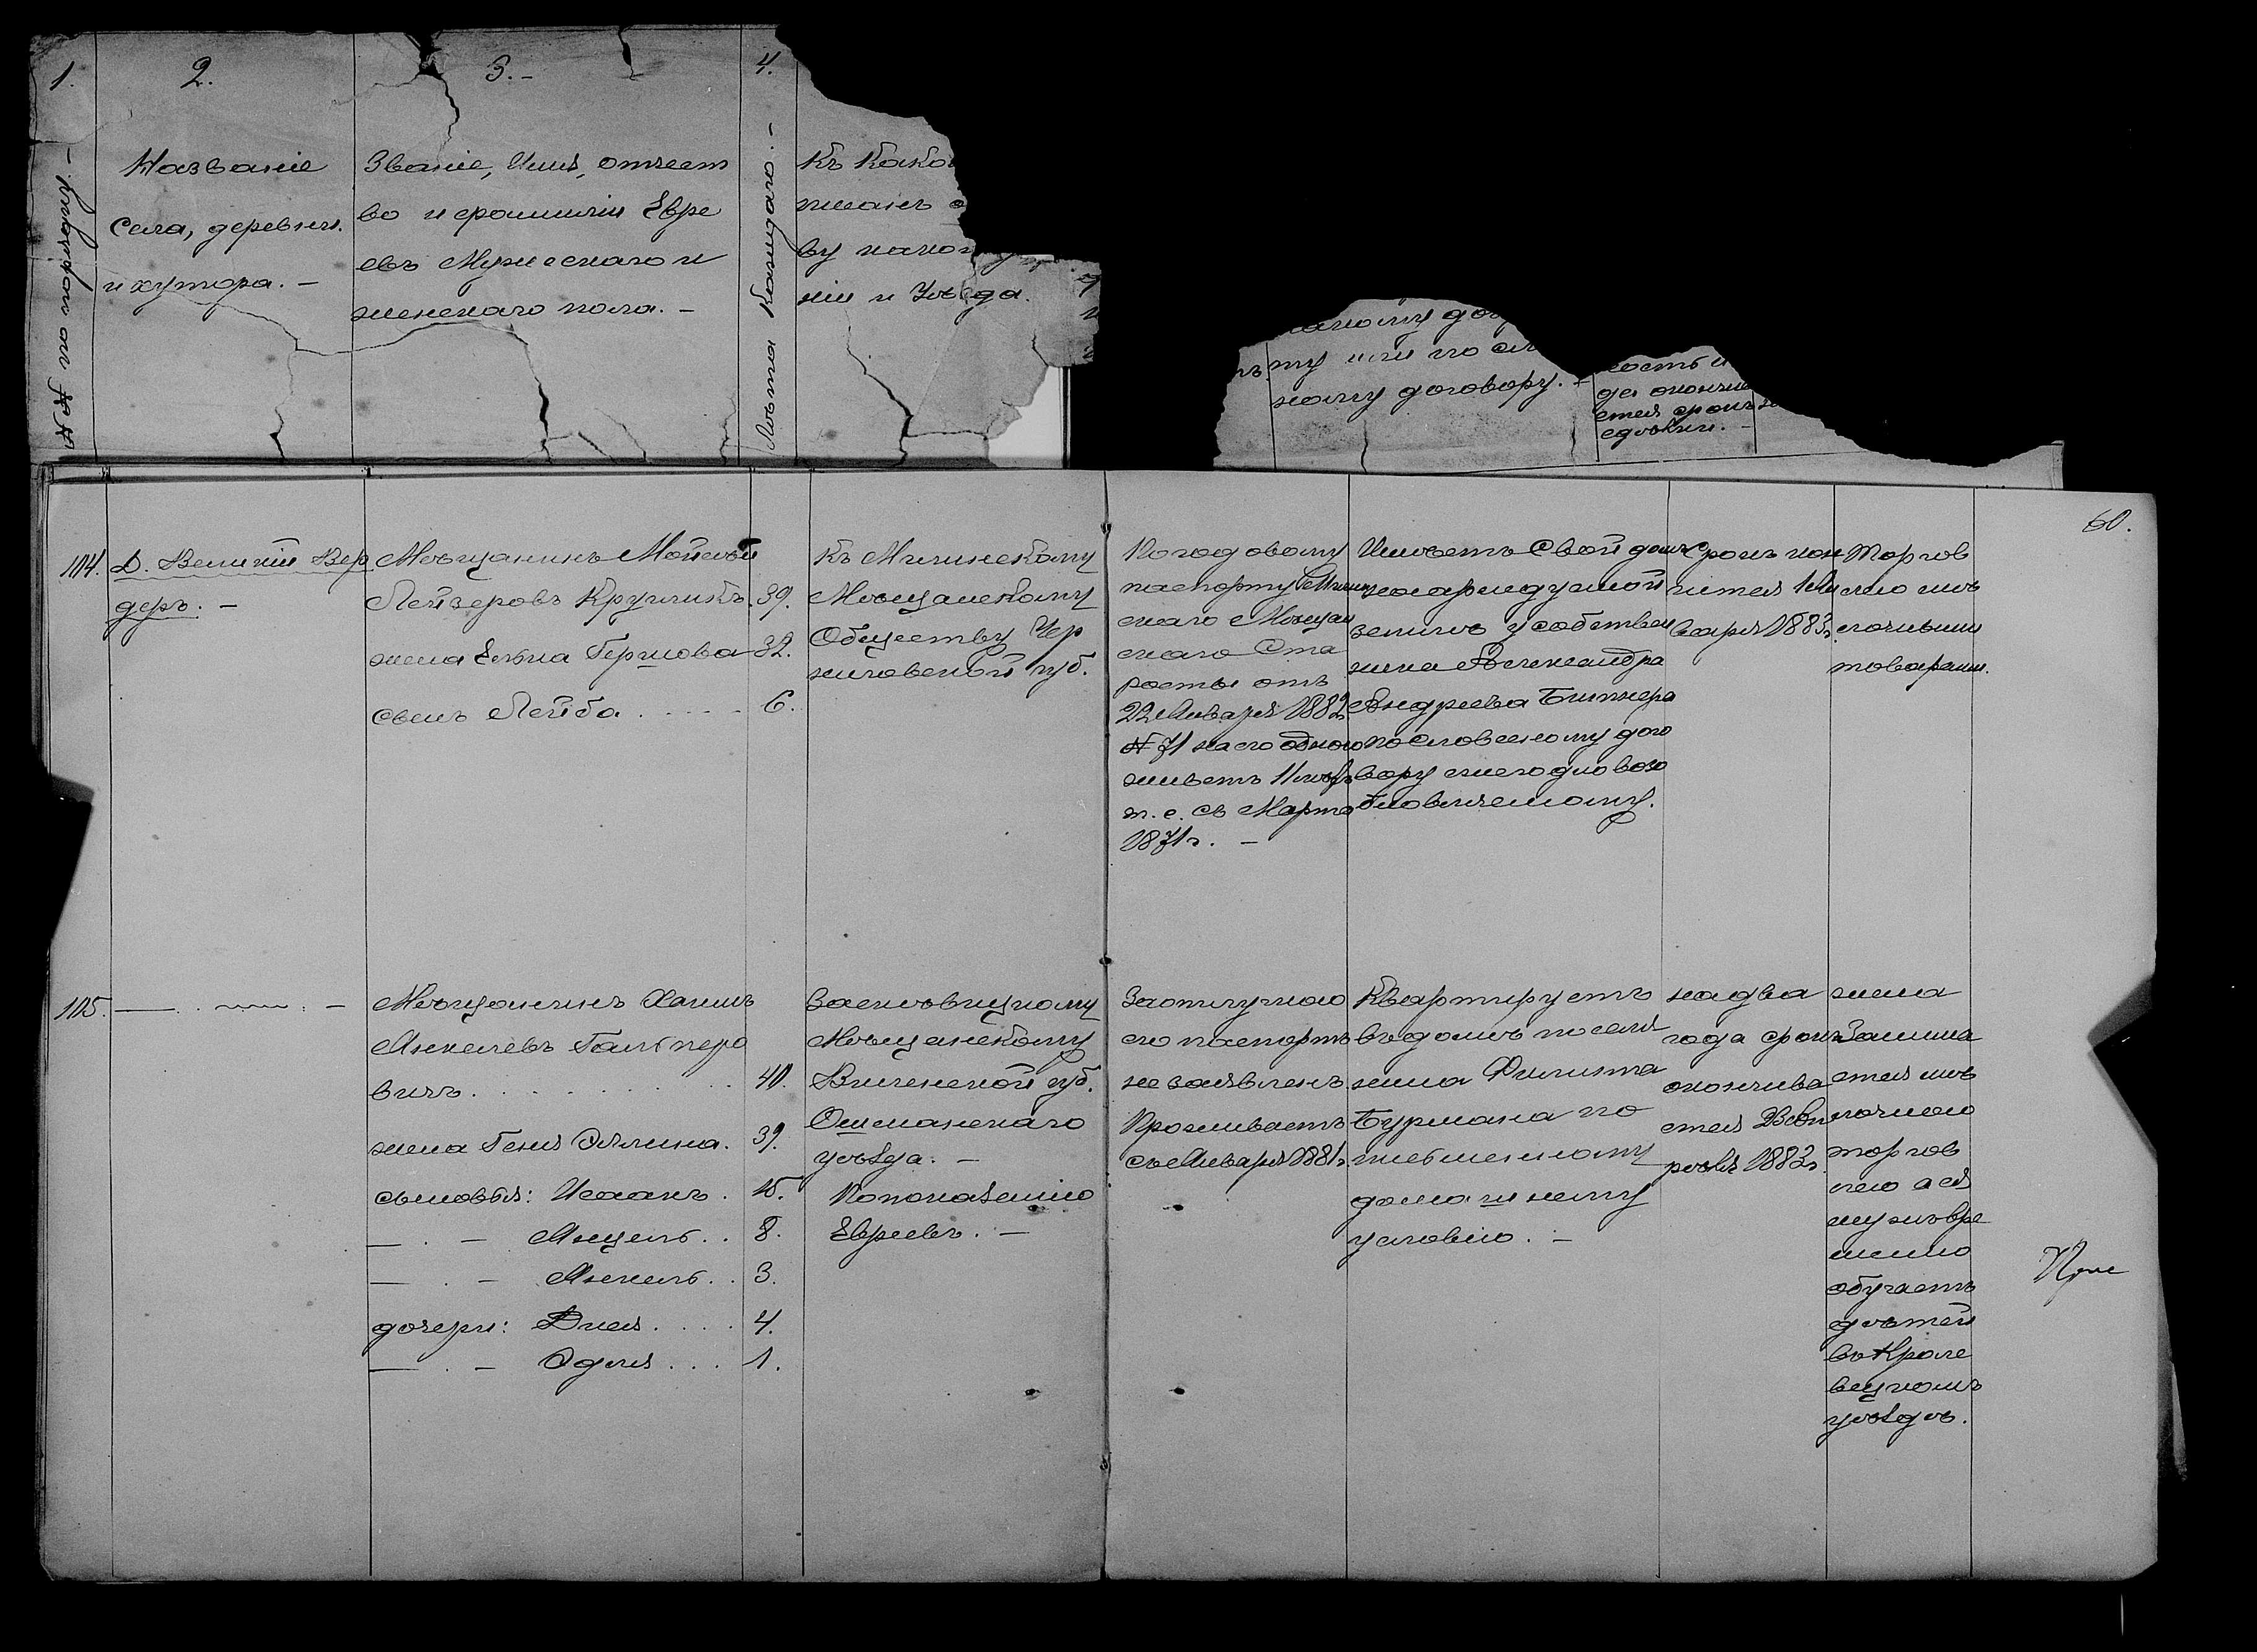 1.
2.
3.-
4.
№№ по порядку. -
Названіе
села, деревни
и хутора. -
Званіе, Имя, отчест
во и фамилія Евре
евъ Мужескаго и
женскаго пола. -
Лѣта Каждаго. -
Къ Како
писанъ
ву како
ніи и Уѣзда.
му или по
ному договору. -
ность и
да окончи
ется срокъ
сдѣлки. -
60.
104.
Д. Великій Вер
деръ. -
Мѣщанинъ Мойсей
Лейзеровъ Кругликъ.
39.
жена Елька Гершова
32.
сынъ Лейба . . . . .
6.
Къ Мглинскому
Мѣщанскому
Обществу Чер
ниговской губ.
По годовому
паспорту Мглин
скаго Мѣщан
скаго Ста
росты отъ
22 Января 1882
№ 71 на его одного
живетъ 11 лѣтъ
т. е. съ Марта
1871 г. -
Имѣетъ свой домъ
на арендуемой
землѣ у собствен
ника Александра
Андреева Битнера
по словесному дого
вору ежегодно возо
бновляемому.
Срокъ кон
чится 1 Ян
варя 1883 г.
Торгов
лею мѣ
лочными
товарами.
105.
Мѣщанинъ Хаимъ
Янкелевъ Гальперо
вичъ . . . . . . .
40.
жена Геня Эллина.
39.
сыновья: Исаакъ .
15.
— . — Янцель . .
8.
— . — Янкель . .
3.
дочери: Двея . . . .
4.
— . — Эдля . . .
1.
Мѣщанскому
Виленской губ.
Ошмянскаго
уѣзда. -
По показанію
Евреевъ. -
За отлучкою
его паспортъ
не заявленъ.
Проживаетъ
съ Января 1881 г.
Квартируетъ
въ домѣ посел
нина Филипа
Бурмана по
письменному
домашнему
условію. -
на два
года срокъ
окончива
ется 2 Фев
раля 1883 г.
жена
Занима
ется мѣ
лочною
торгов
лею а ея
мужъ вре
менно
обучаетъ
дѣтей
въ Кроле
вецкомъ
уѣздѣ.